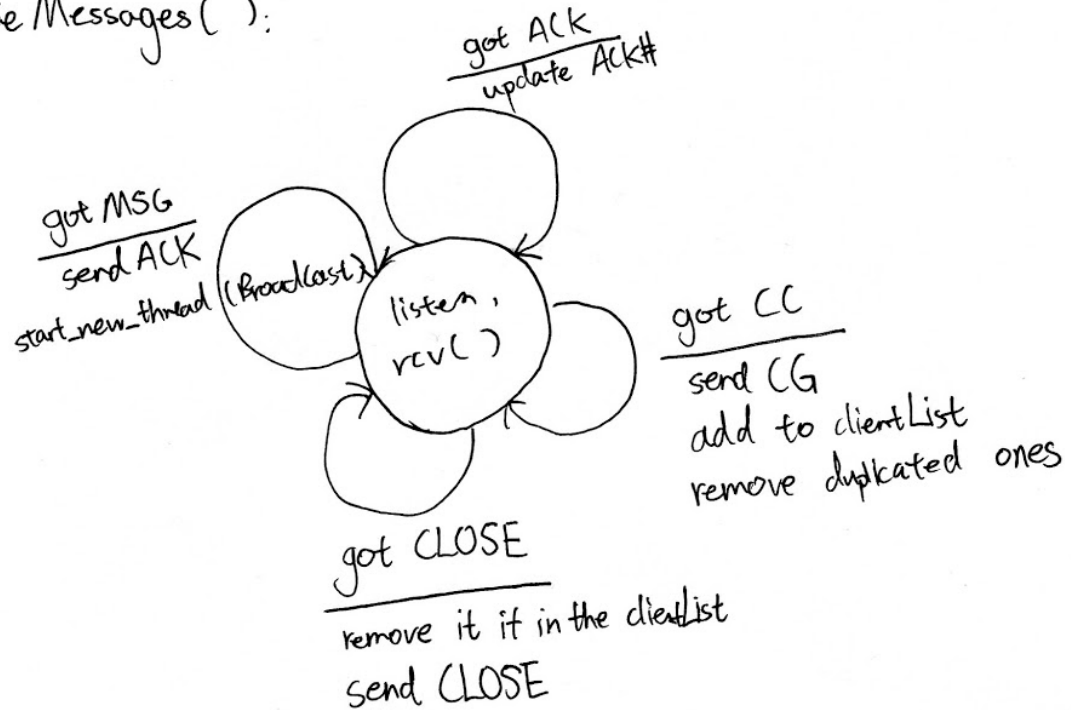 e Messages( ):
got ACK
update ACK#
got MSG
send ACK
start_new_thread (BroadCast)
listen,
rcv( )
got CC
send CG
add to clientList
remove duplicated ones
got CLOSE
remove it if in the clientList
send CLOSE